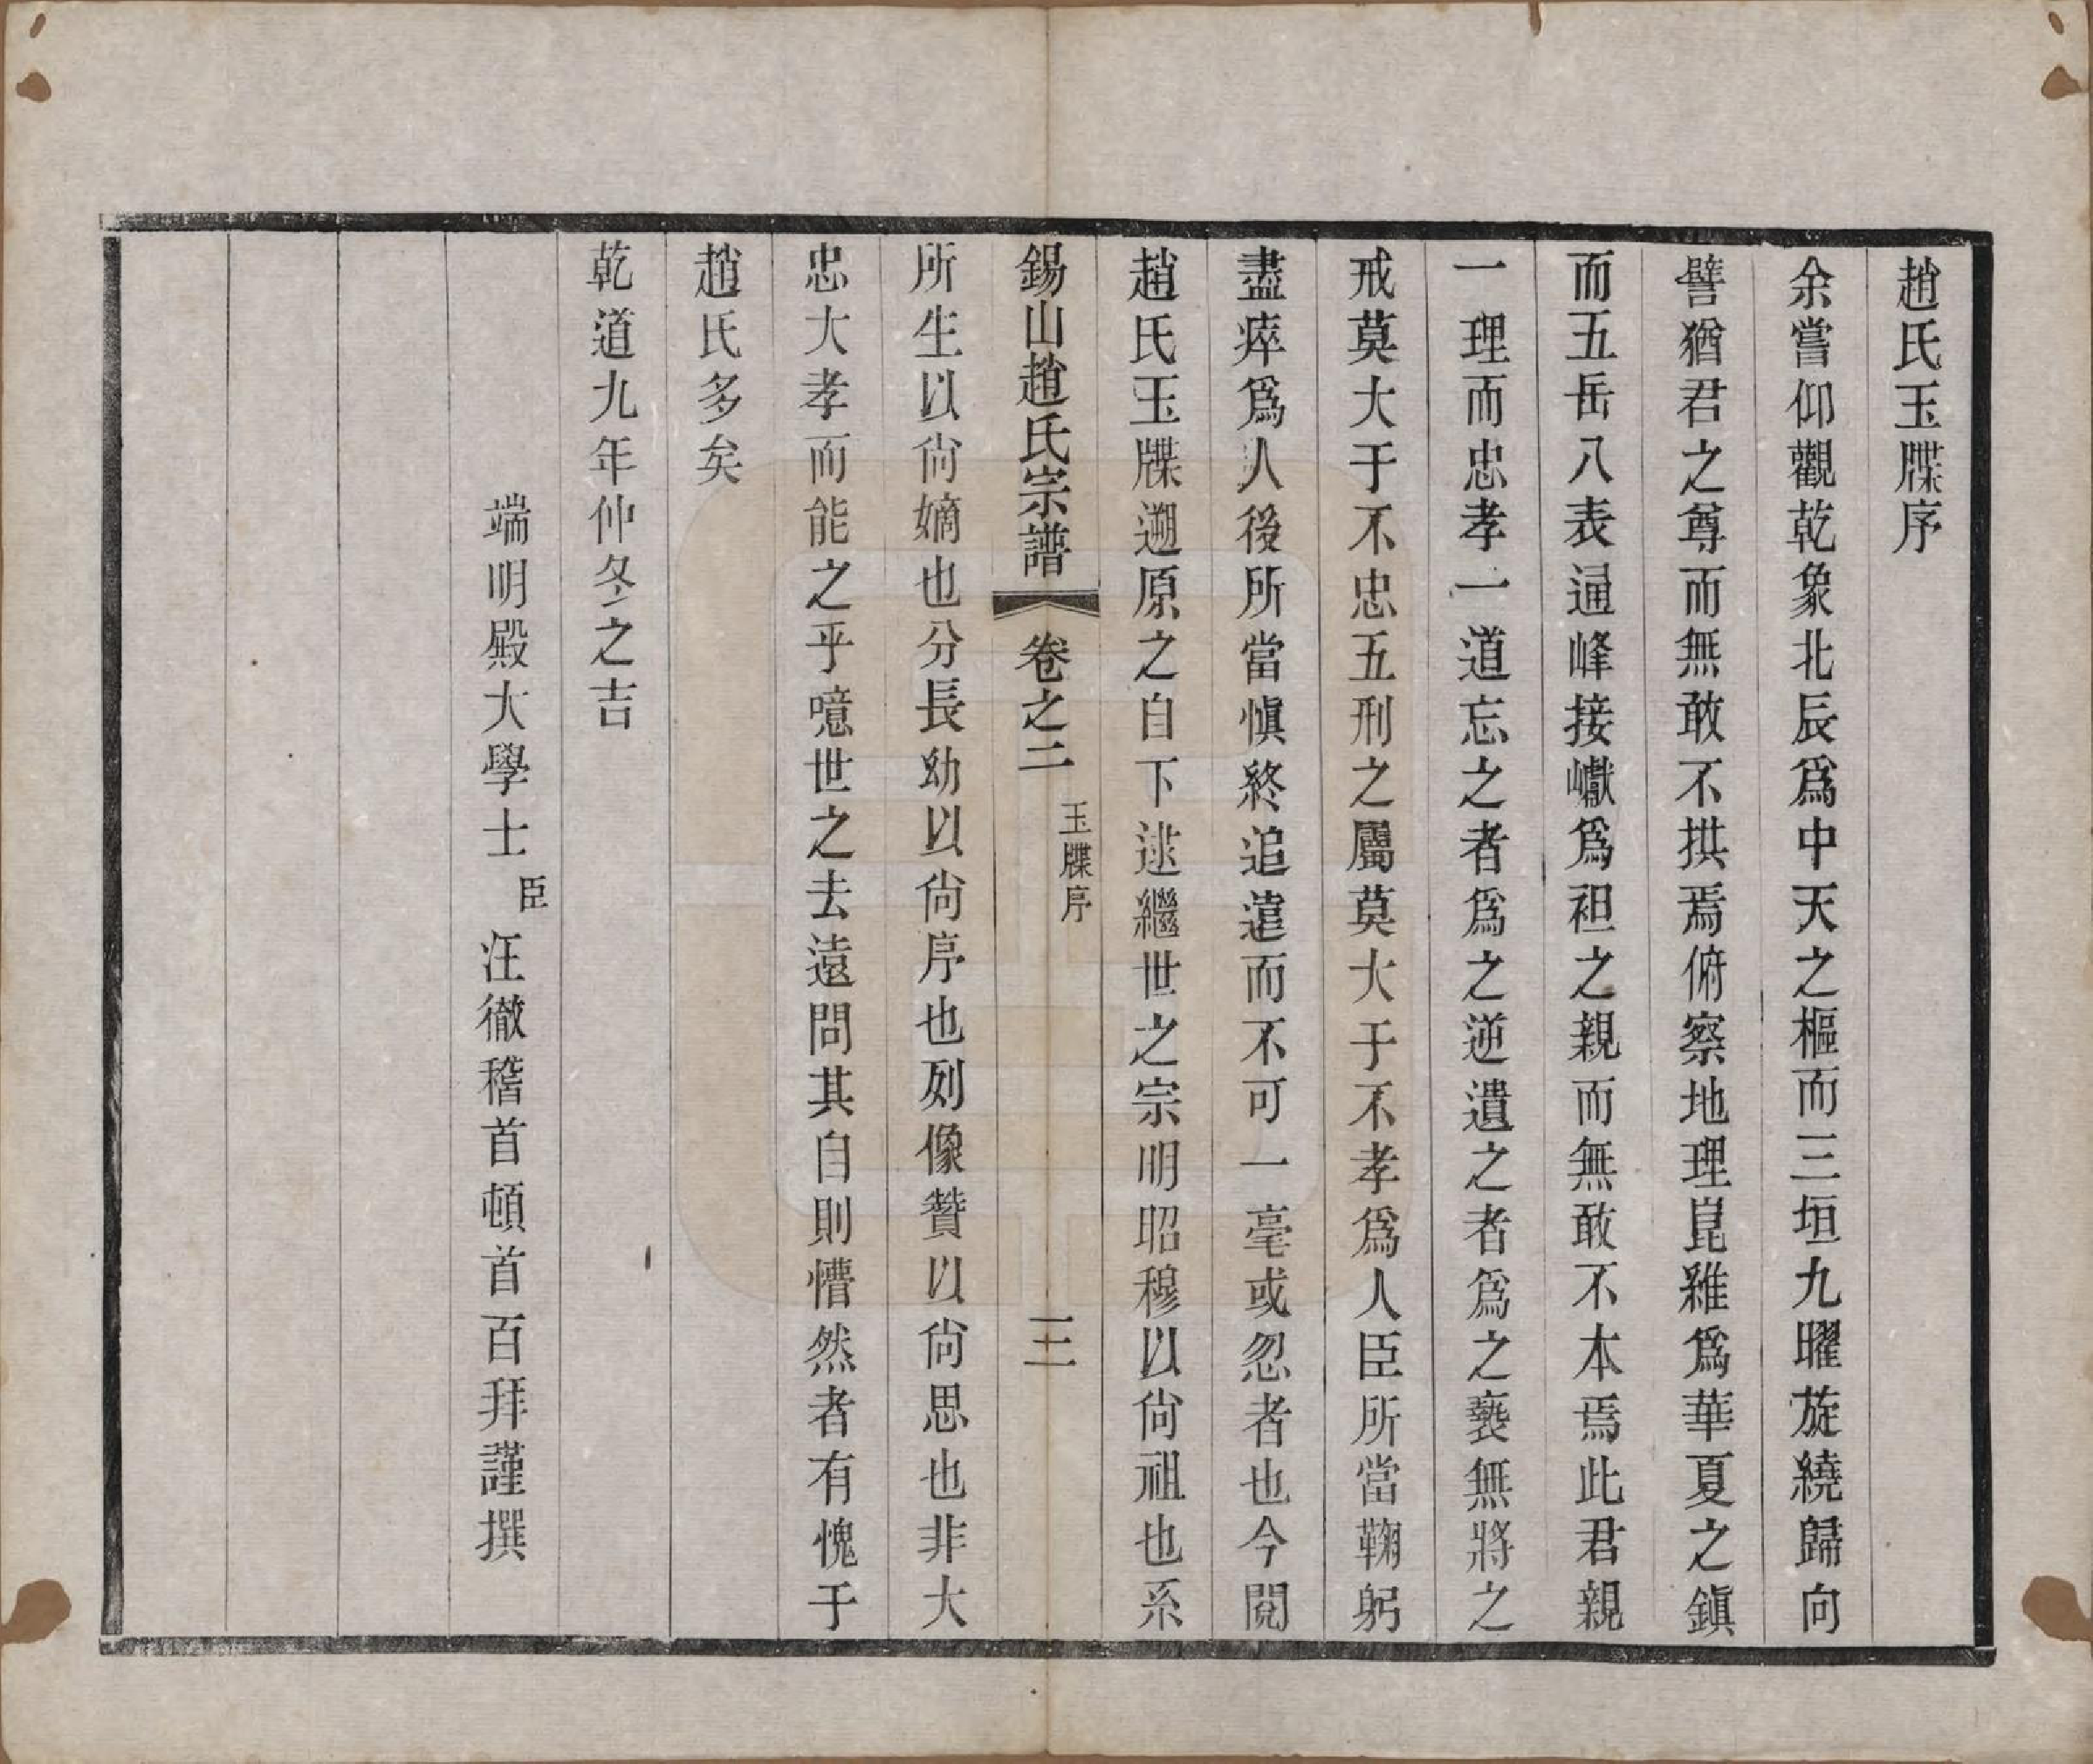 趙氏玉牒序
余嘗仰觀乾象北辰爲中天之樞而三垣九曜旋繞歸向
譬猶君之尊而無敢不拱焉俯察地理崑雖爲華夏之鎭
而五岳八表逼峰接巘爲袒之親而無敢不本焉此君親
一理而忠孝一道忘之者爲之逆遺之者爲之褻無將之
戒莫大于不忠五刑之屬莫大于不孝爲人臣所當鞠躬
盡瘁爲人後所當愼終追遣而不可一毫或忽者也今閱
趙氏玉牒遡原之自下逮繼世之宗明昭穆以尙祖也系
錫山趙氏宗譜 卷之二 玉牒序 三
所生以尙嫡也分長幼以尙序也列像贊以尙思也非大
忠大孝而能之乎噫世之去遠問其自則懵然者有愧于
趙氏多矣
乾道九年仲冬之吉
端明殿大學士臣汪徹稽首頓首百拜謹撰